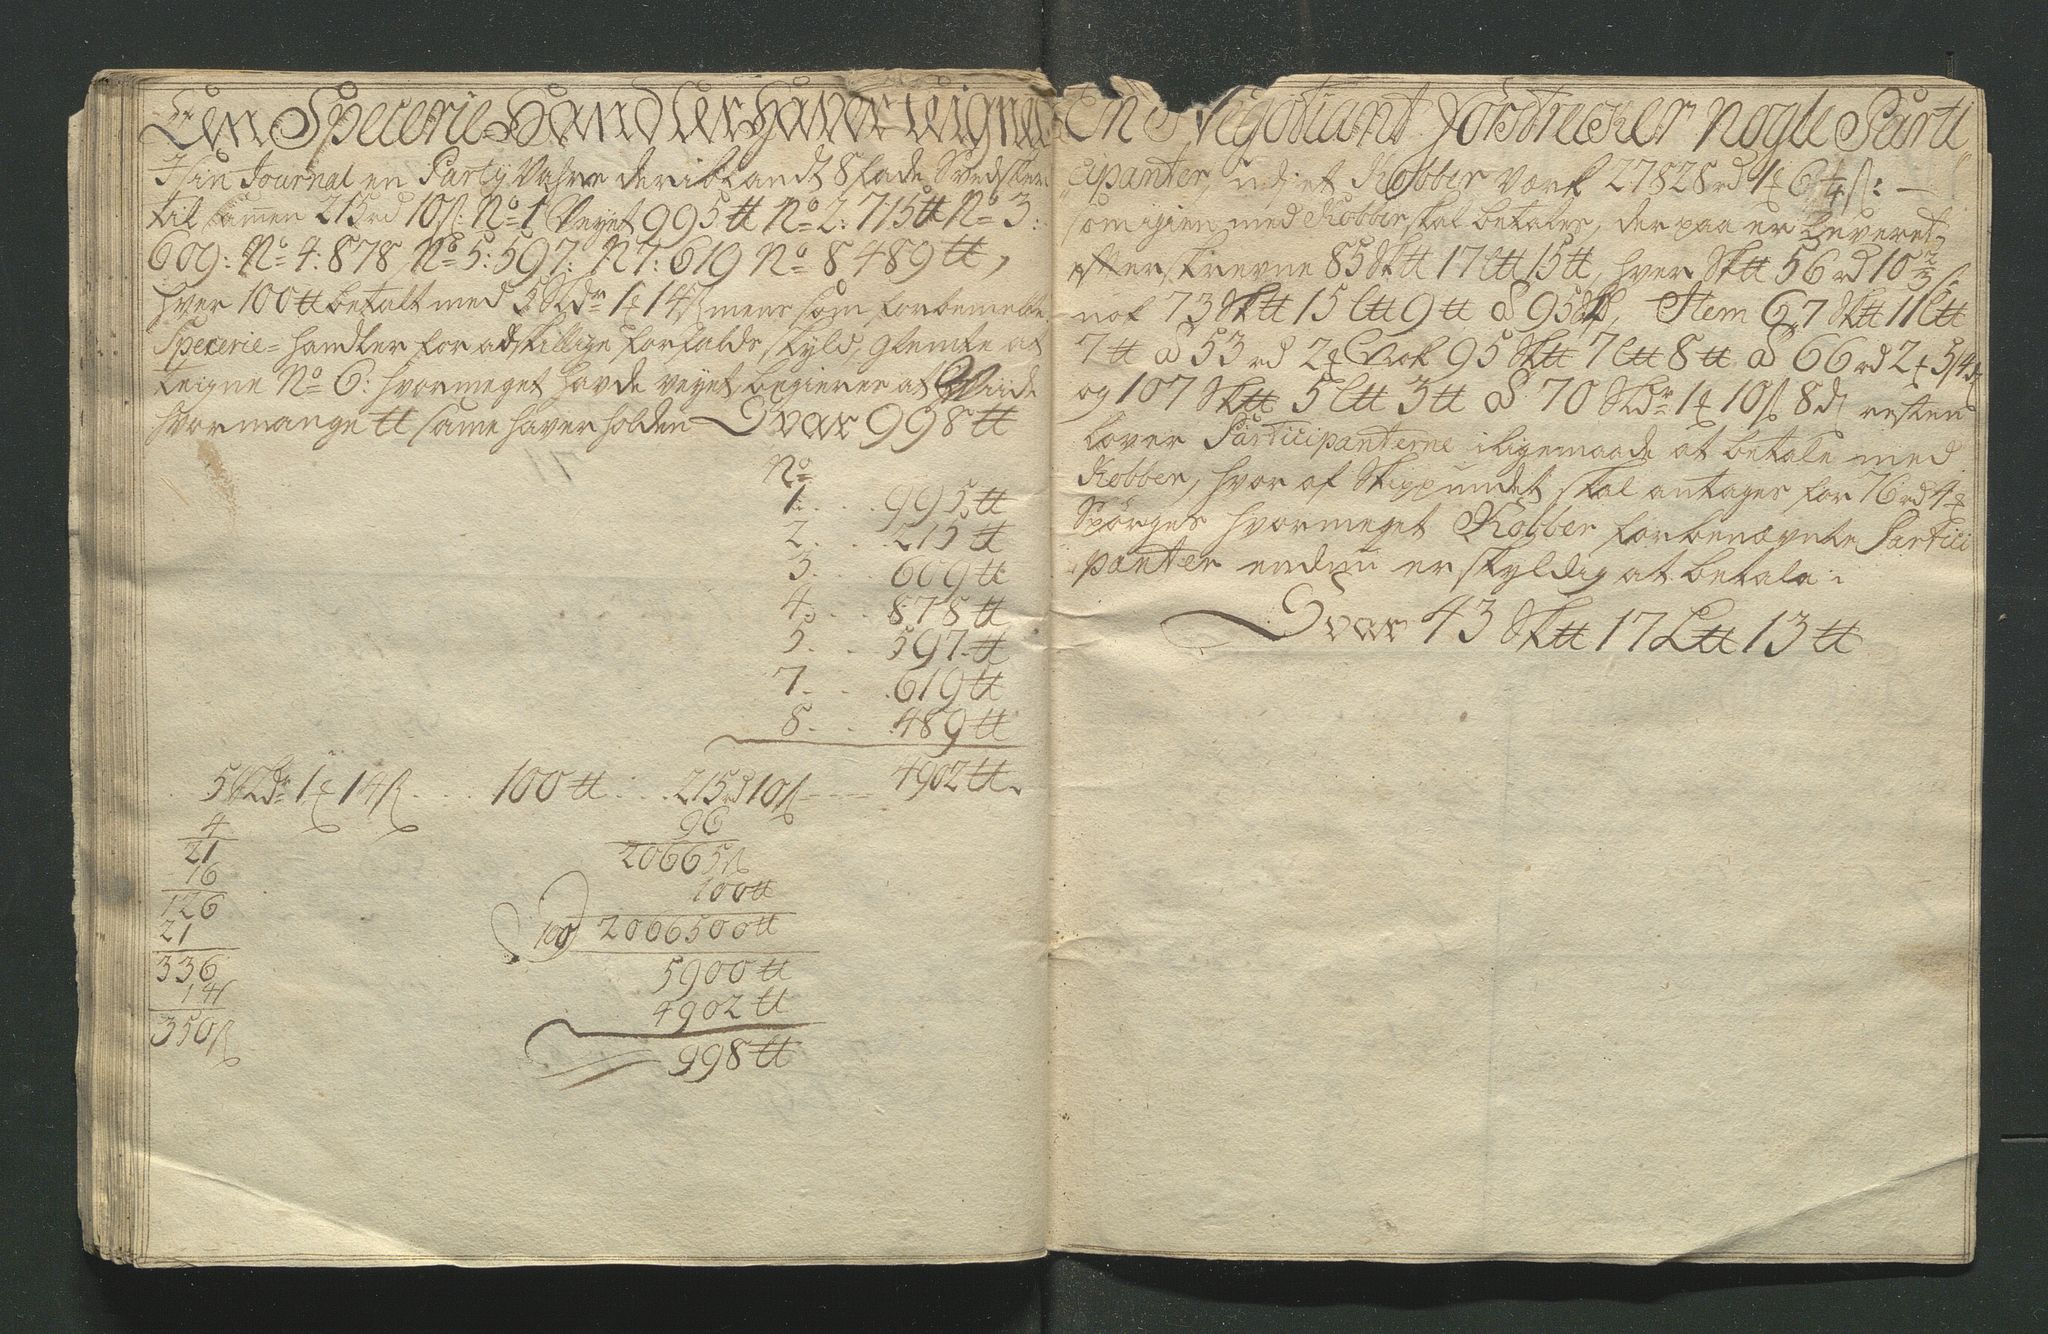 Een Specerie Handler haver teigne
I sin Journal en Party Vahre deriblandt 8 fade Svedsker
til samen 215 rd 10 ß: No 1 Veyet 995 ℔ No 2: 715 ℔ No 3:
609: No 4: 878, No 5: 597: N 7: 619 No 8 489 ℔,
hver 100 ℔ betalt med 5 Sldr 1 ƶ 14 ß mens som forbemelte
Specerie-handler for adskillige forfalds skyld, glemte at
teigne No 6: hvormeget havde veyet begierer at Vide
hvormange ℔ same haver holden Svar 998 ℔
No
1. . . . 995 ℔
2. . . . 715 ℔
3. . . . 609 ℔
4. . . . 878 ℔
5. . . . 597 ℔
7. . . . 619 ℔
8. . . . 489 ℔
5 Sldr 1 ƶ 14 ß . . . . 100 ℔ . . . 215 rd 10 ß - - - 4902 ℔
4
96
21
20665 ß
16
100 ℔
126
100 2066500 ℔
21
336
5900 ℔
14 ß
4902 ℔
350 ß
998 ℔
En Negotiant forstrecker nogle Parti
cipanter, udi et Kobber Værk 27828 rd 1 ƶ 6 1/4 ß: —
som igien med Kobber skal betales, der paa er Leveret
efterskrevne 85 Sk℔ 17 L℔ 15 ℔, hver Sk℔ 56 rd 10 2/3 ß
nok 73 Sk℔ 15 L℔ 9 ℔ a 95 Item 67 Sk℔ 11 L℔
7 ℔ a 53 rd 2 ƶ Nok 95 Sk℔ 7 L℔ 8 ℔ a 66 rd 2 ƶ 5 ß 4 d
og 107 Sk℔ 5 L℔ 3 ℔ a 70 Sldr 1 ƶ 10 ß 8 d resten
lover Participanterne i ligemaade at betale med
Kobber, hvor af Skippundet skal antages for 76 rd 4 ƶ
Spørges hvormeget Kobber forbenævnte Partici
panter endnu er skyldig at betale:
Svar 43 Sk℔ 17 L℔ 13 ℔